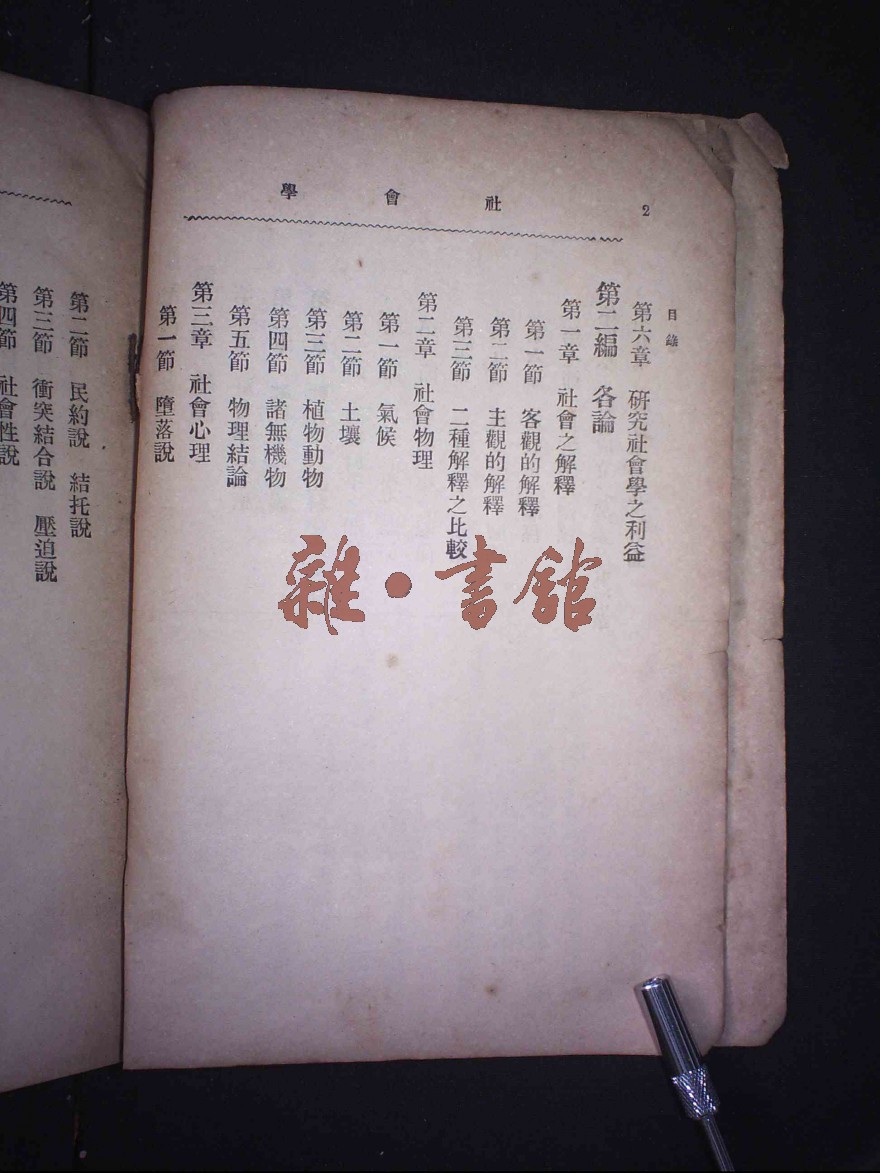 社會學
2
目錄
第六章 研究社會學之利益
第二編 各論
第一章 社會之解釋
第一節 客觀的解釋
第二節 主觀的解釋
第三節 二種解釋之比較
第二章 社會物理
第一節 氣候
第二節 土壤
第三節 植物動物
第四節 諸無機物
第五節 物理結論
第三章 社會心理
第一節 墮落說
第二節 民約說 結托說
第三節 衝突結合說 壓迫說
第四節 社會性說
雜·書館